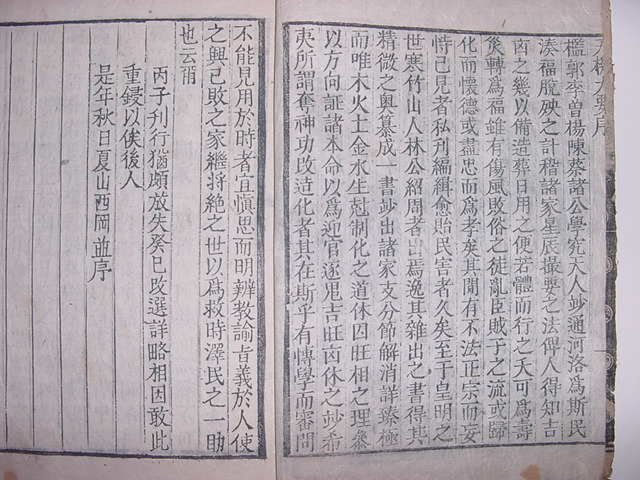 天機大要序
檻郭李曾楊陳蔡諸公學究天人妙通河洛為斯民
湊福脫殃之計稽諸家星辰撮要之法俾人得知吉
凶之幾以備造葬日用之便若體而行之夭可為壽
災轉為福雖有傷風敗俗之徒亂臣賊子之流或歸
化而懷德或盡忠而為孝矣其間有不法正宗而妄
恃己見者私刊編緝愈貽民害者久矣至于皇明之
世寒竹山人林公紹周者出焉逸其雜出之書得其
精微之奧纂成一書妙出諸家支分節解消詳臻極
而唯木火土金水生尅制化之道休囚旺相之理纂
以方向証諸本命以為迎官逐鬼吉旺凶休之妙希
夷所謂奪神功改造化者其在斯乎有博學而審問
不能見用於時者宜慎思而明辨教諭旨義於人使
之興已敗之家繼將絕之世以為救時澤民之一助
也云爾
丙子刊行猶頗放失癸巳改選詳略相因敢此
重鋟以俟後人
是年秋日夏山西岡並序